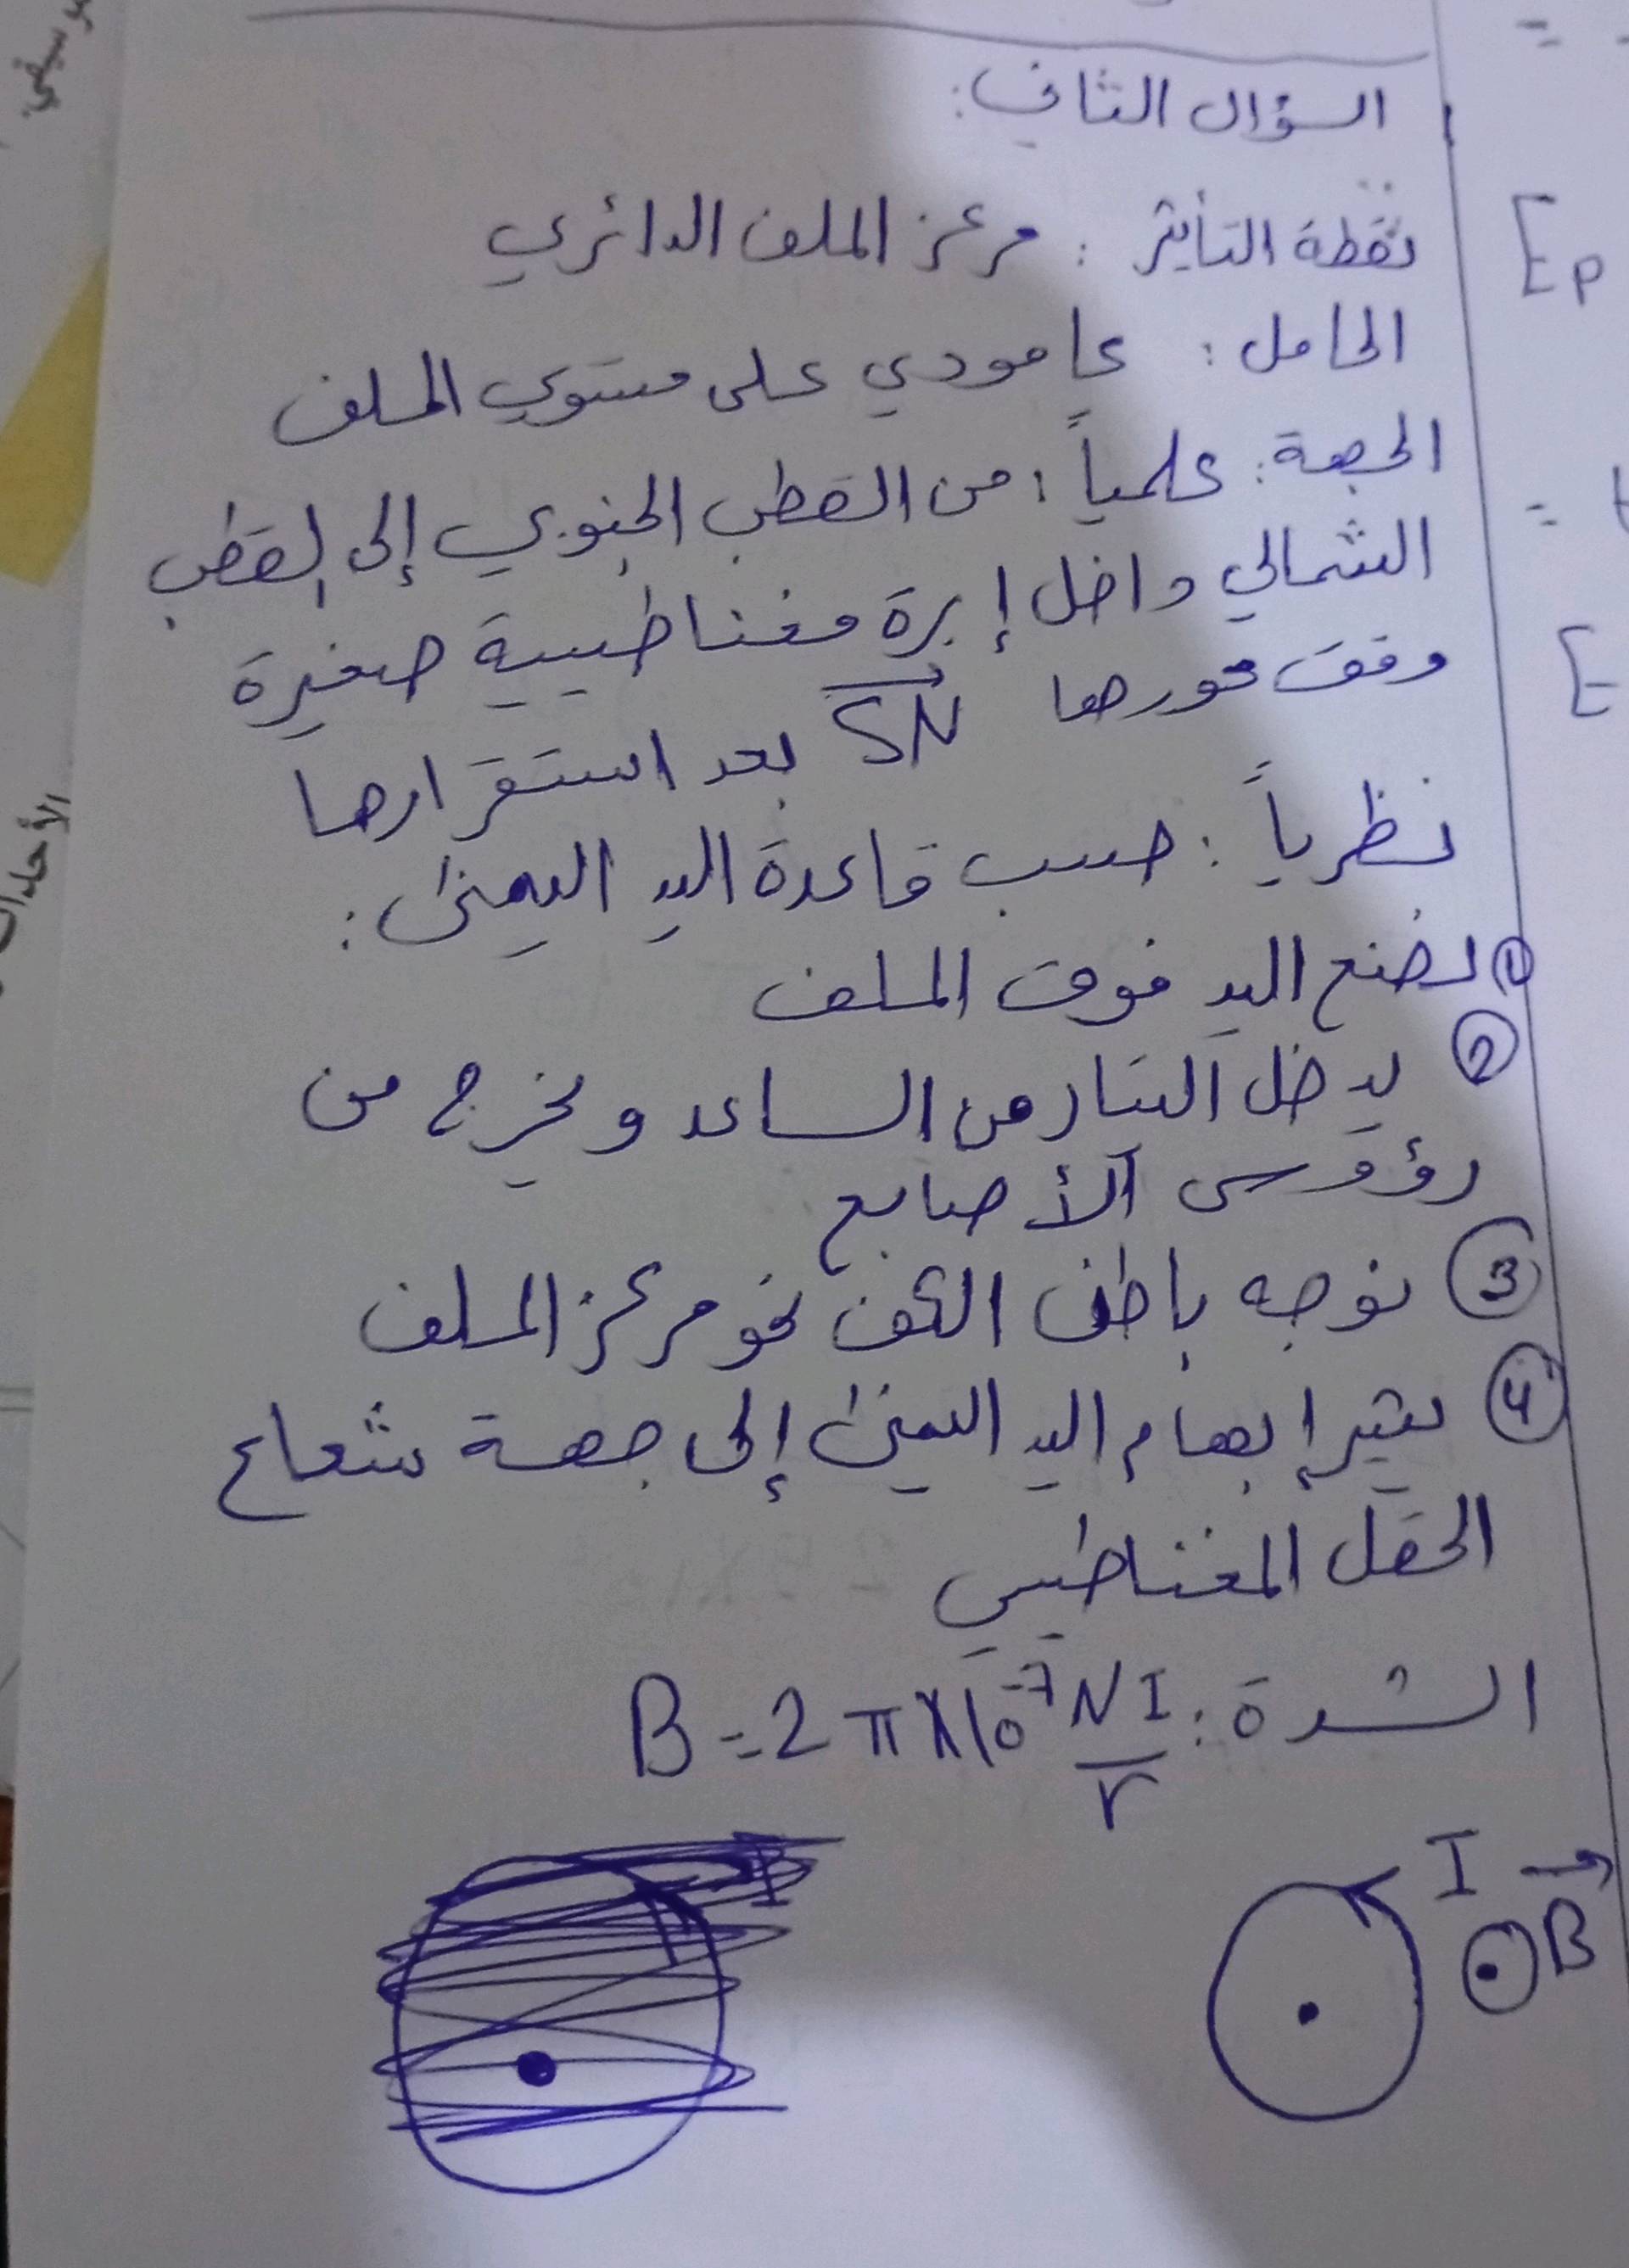 السؤال الثاني:
نقطة التأثير : مركز الملف الدائري
الحامل : عامودي على مستوي الملف
الجهة : علمياً : من القطب الجنوبي إلى القطب
الشمالي داخل إبرة مغناطيسية صغيرة
وفق محورها SN بعد استقرارها
نظرياً : حسب قاعدة اليد اليمنى :
① نضع اليد فوق الملف
② يدخل التيار من الساعد ويخرج من
رؤوس الأصابع
③ نوجه باطن الكف نحو مركز الملف
④ يشير إبهام اليد اليمنى إلى جهة شعاع
الحقل المغناطيسي
الشدة : B = 2π×10⁻⁷ NI/r
I
B
Ep
E